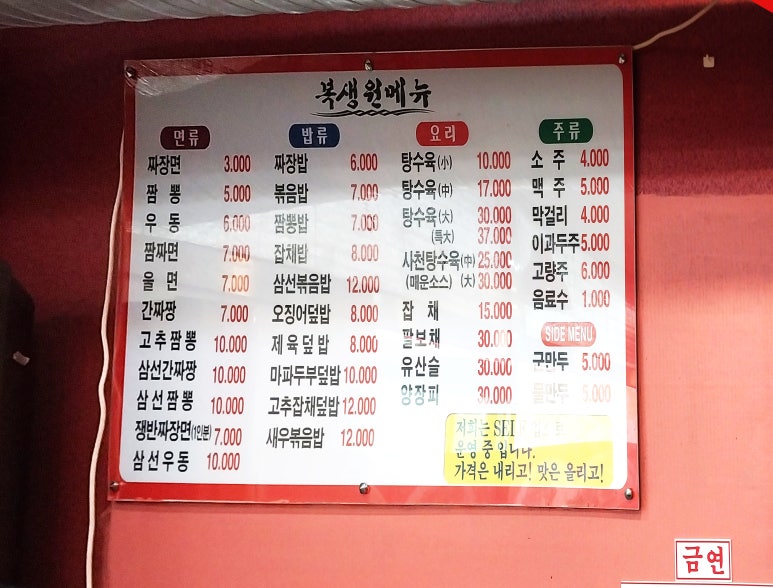 북생원메뉴
면류
짜장면 3.000
짬뽕 5.000
우동 6.000
짬짜면 7.000
울면 7.000
간짜장 7.000
고추짬뽕 10.000
삼선간짜장 10.000
삼선짬뽕 10.000
쟁반짜장면(1인분) 7.000
삼선우동 10.000
밥류
짜장밥 6.000
볶음밥 7.000
짬뽕밥 7.000
잡채밥 8.000
삼선볶음밥 12.000
오징어덮밥 8.000
제육덮밥 8.000
마파두부덮밥 10.000
고추잡채덮밥 12.000
새우볶음밥 12.000
요리
탕수육(小) 10.000
탕수육(中) 17.000
탕수육(大) 30.000
(특大) 37.000
사천탕수육(中) 25.000
(매운소스) (大) 30.000
잡채 15.000
팔보채 30.000
유산슬 30.000
양장피 30.000
주류
소주 4.000
맥주 5.000
막걸리 4.000
이과두주 5.000
고량주 6.000
음료수 1.000
SIDE MENU
군만두 5.000
물만두 5.000
저희는 SEL
운영 중 입니다.
가격은 내리고! 맛은 올리고!
금연